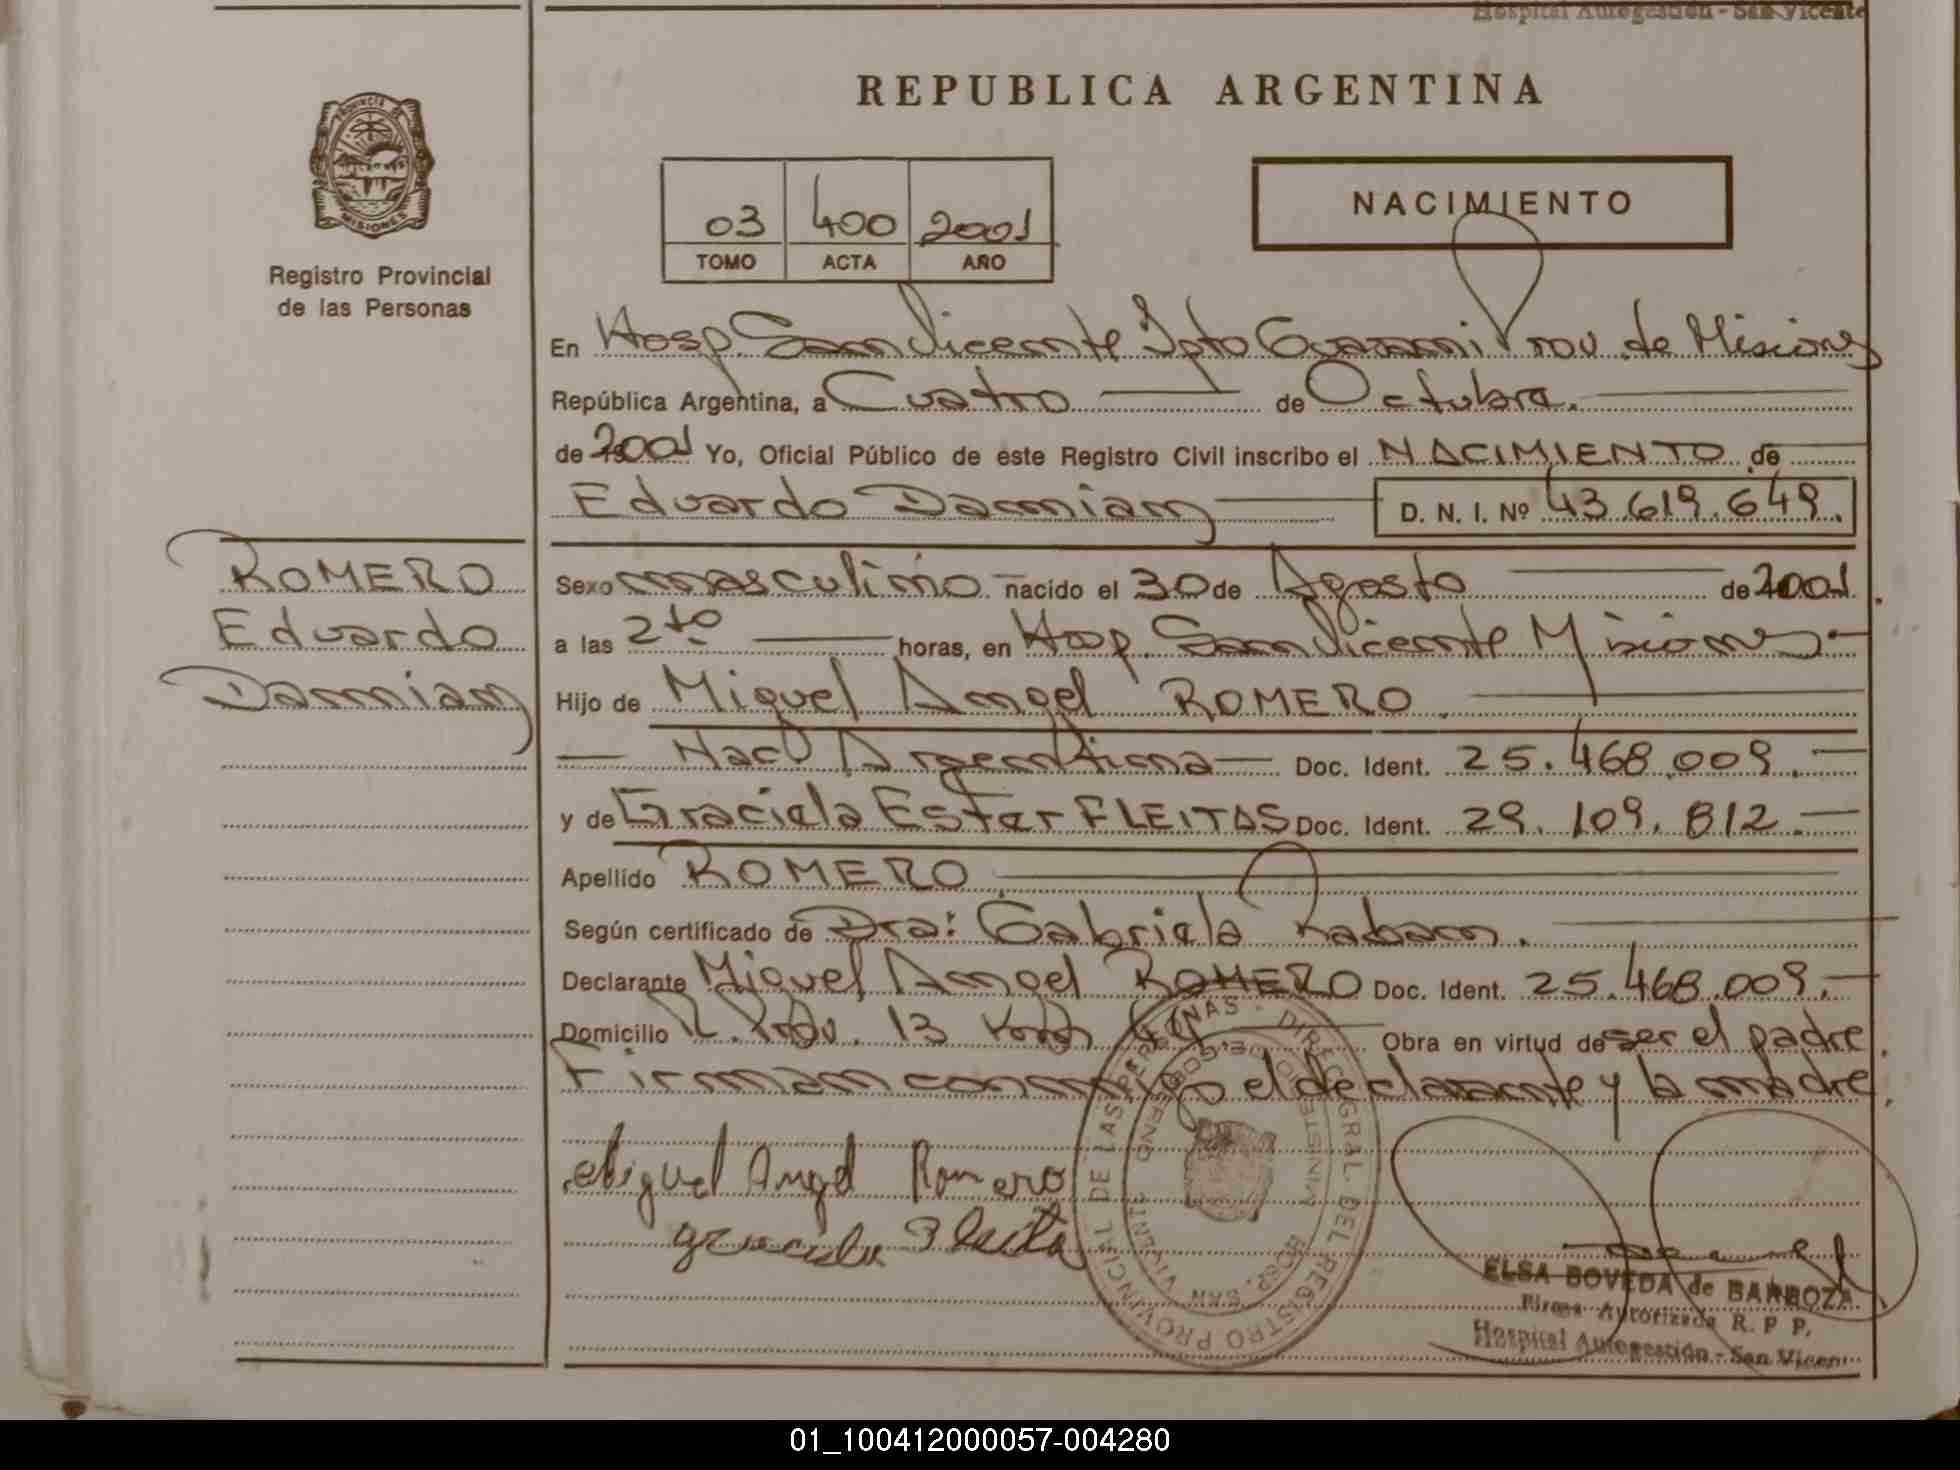 Hospital Autogestión - San Vicente
REPUBLICA ARGENTINA
PROVINCIA DE
MISIONES
Registro Provincial
de las Personas
03 400 2001
TOMO ACTA AÑO
NACIMIENTO
En Hosp. San Vicente Dpto Guarani Prov. de Misiones
República Argentina, a Cuatro de Octubre.
de 2001 Yo, Oficial Público de este Registro Civil inscribo el NACIMIENTO de
Eduardo Damian D. N. I. Nº 43.619.649.
ROMERO
Eduardo
Damian
Sexo masculino nacido el 30 de Agosto de 2001.
a las 2 horas, en Hosp. San Vicente Misiones
Hijo de Miguel Angel ROMERO
Nac Argentina Doc. Ident. 25.468.009.
y de Graciela Ester FLEITAS Doc. Ident. 29.109.812.
Apellido ROMERO
Según certificado de Dra: Gabriela Raban.
Declarante Miguel Angel ROMERO Doc. Ident. 25.468.009.
Domicilio R. Prov. 13 Obra en virtud de ser el padre.
Firman conmigo el declarante y la madre.
Miguel Angel Romero
graciela Fleita
REGISTRO PROVINCIAL DE LAS PERSONAS - DIREC. GRAL. DEL
MINISTERIO DE GOBIERNO
HOSP. SAN VICENTE
ELSA BOVEDA de BARBOZA
Firma Autorizada R. P. P.
Hospital Autogestión - San Vicen
01_100412000057-004280